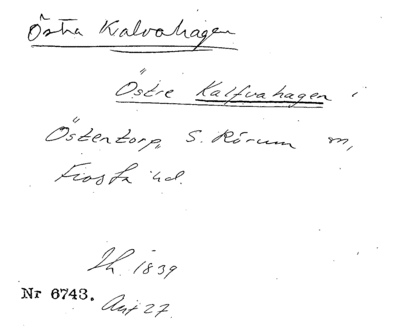 Östra Kalvahagen
Östre Kalfvahagen i
Östentorp, S. Rörum sn,
Frosta hd.
1839
Nr 6743.
Akt 27.